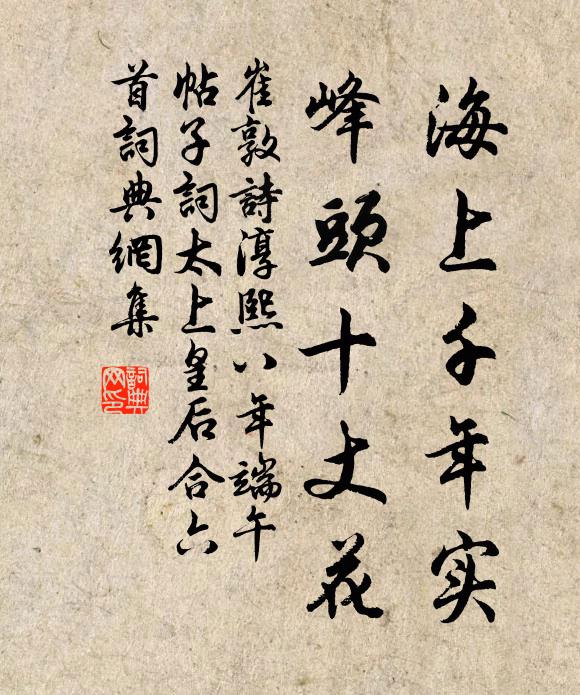 海上千年实
峰頭十丈花
崔敦詩淳熙八年端午
帖子詞太上皇后合六
首詞典網集
詞典
网印